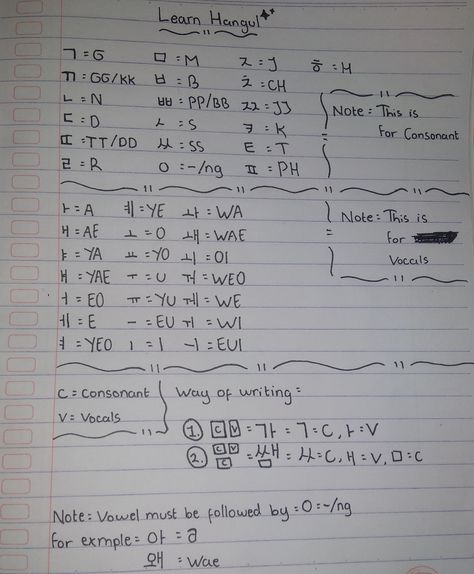 Learn Hangul
ㄱ = G ㅁ : M ㅈ = J ㅎ : H
ㄲ = GG/KK ㅂ = B ㅊ = CH
ㄴ = N ㅃ = PP/BB ㅉ = JJ Note : This is
ㄷ = D ㅅ = S ㅋ = K For Consonant
ㄸ = TT/DD ㅆ = SS ㅌ = T
ㄹ = R ㅇ = -/ng ㅍ = PH
ㅏ = A ㅖ = YE ㅘ = WA Note : This is
ㅐ = AE ㅗ = O ㅙ = WAE for
ㅑ = YA ㅛ = YO ㅚ = OI Vocals
ㅒ = YAE ㅜ = U ㅝ = WEO
ㅓ = EO ㅠ = YU ㅞ = WE
ㅔ = E ㅡ = EU ㅟ = WI
ㅕ = YEO ㅣ = I ㅢ = EUI
C = Consonant Way of writing =
V = Vocals
1. C V = 가 = ㄱ = C, ㅏ = V
2. C V C = 쌤 = ㅆ = C, ㅐ = V, ㅁ = C
Note = Vowel must be followed by = ㅇ = -/ng
for exmple = 아 = a
왜 = Wae